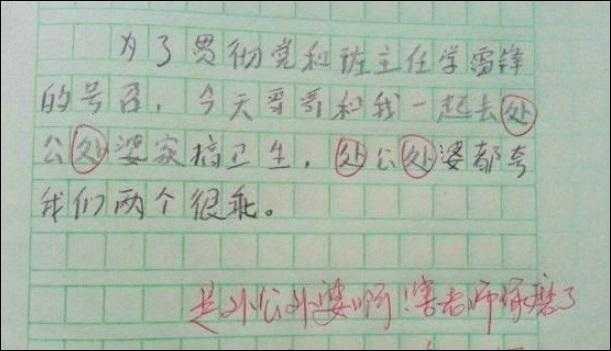 为了贯彻党和班主任学雷锋
的号召，今天哥哥和我一起去处
公处婆家搞卫生，处公处婆都夸
我们两个很乖。
是外公外婆啊！害老师琢磨了